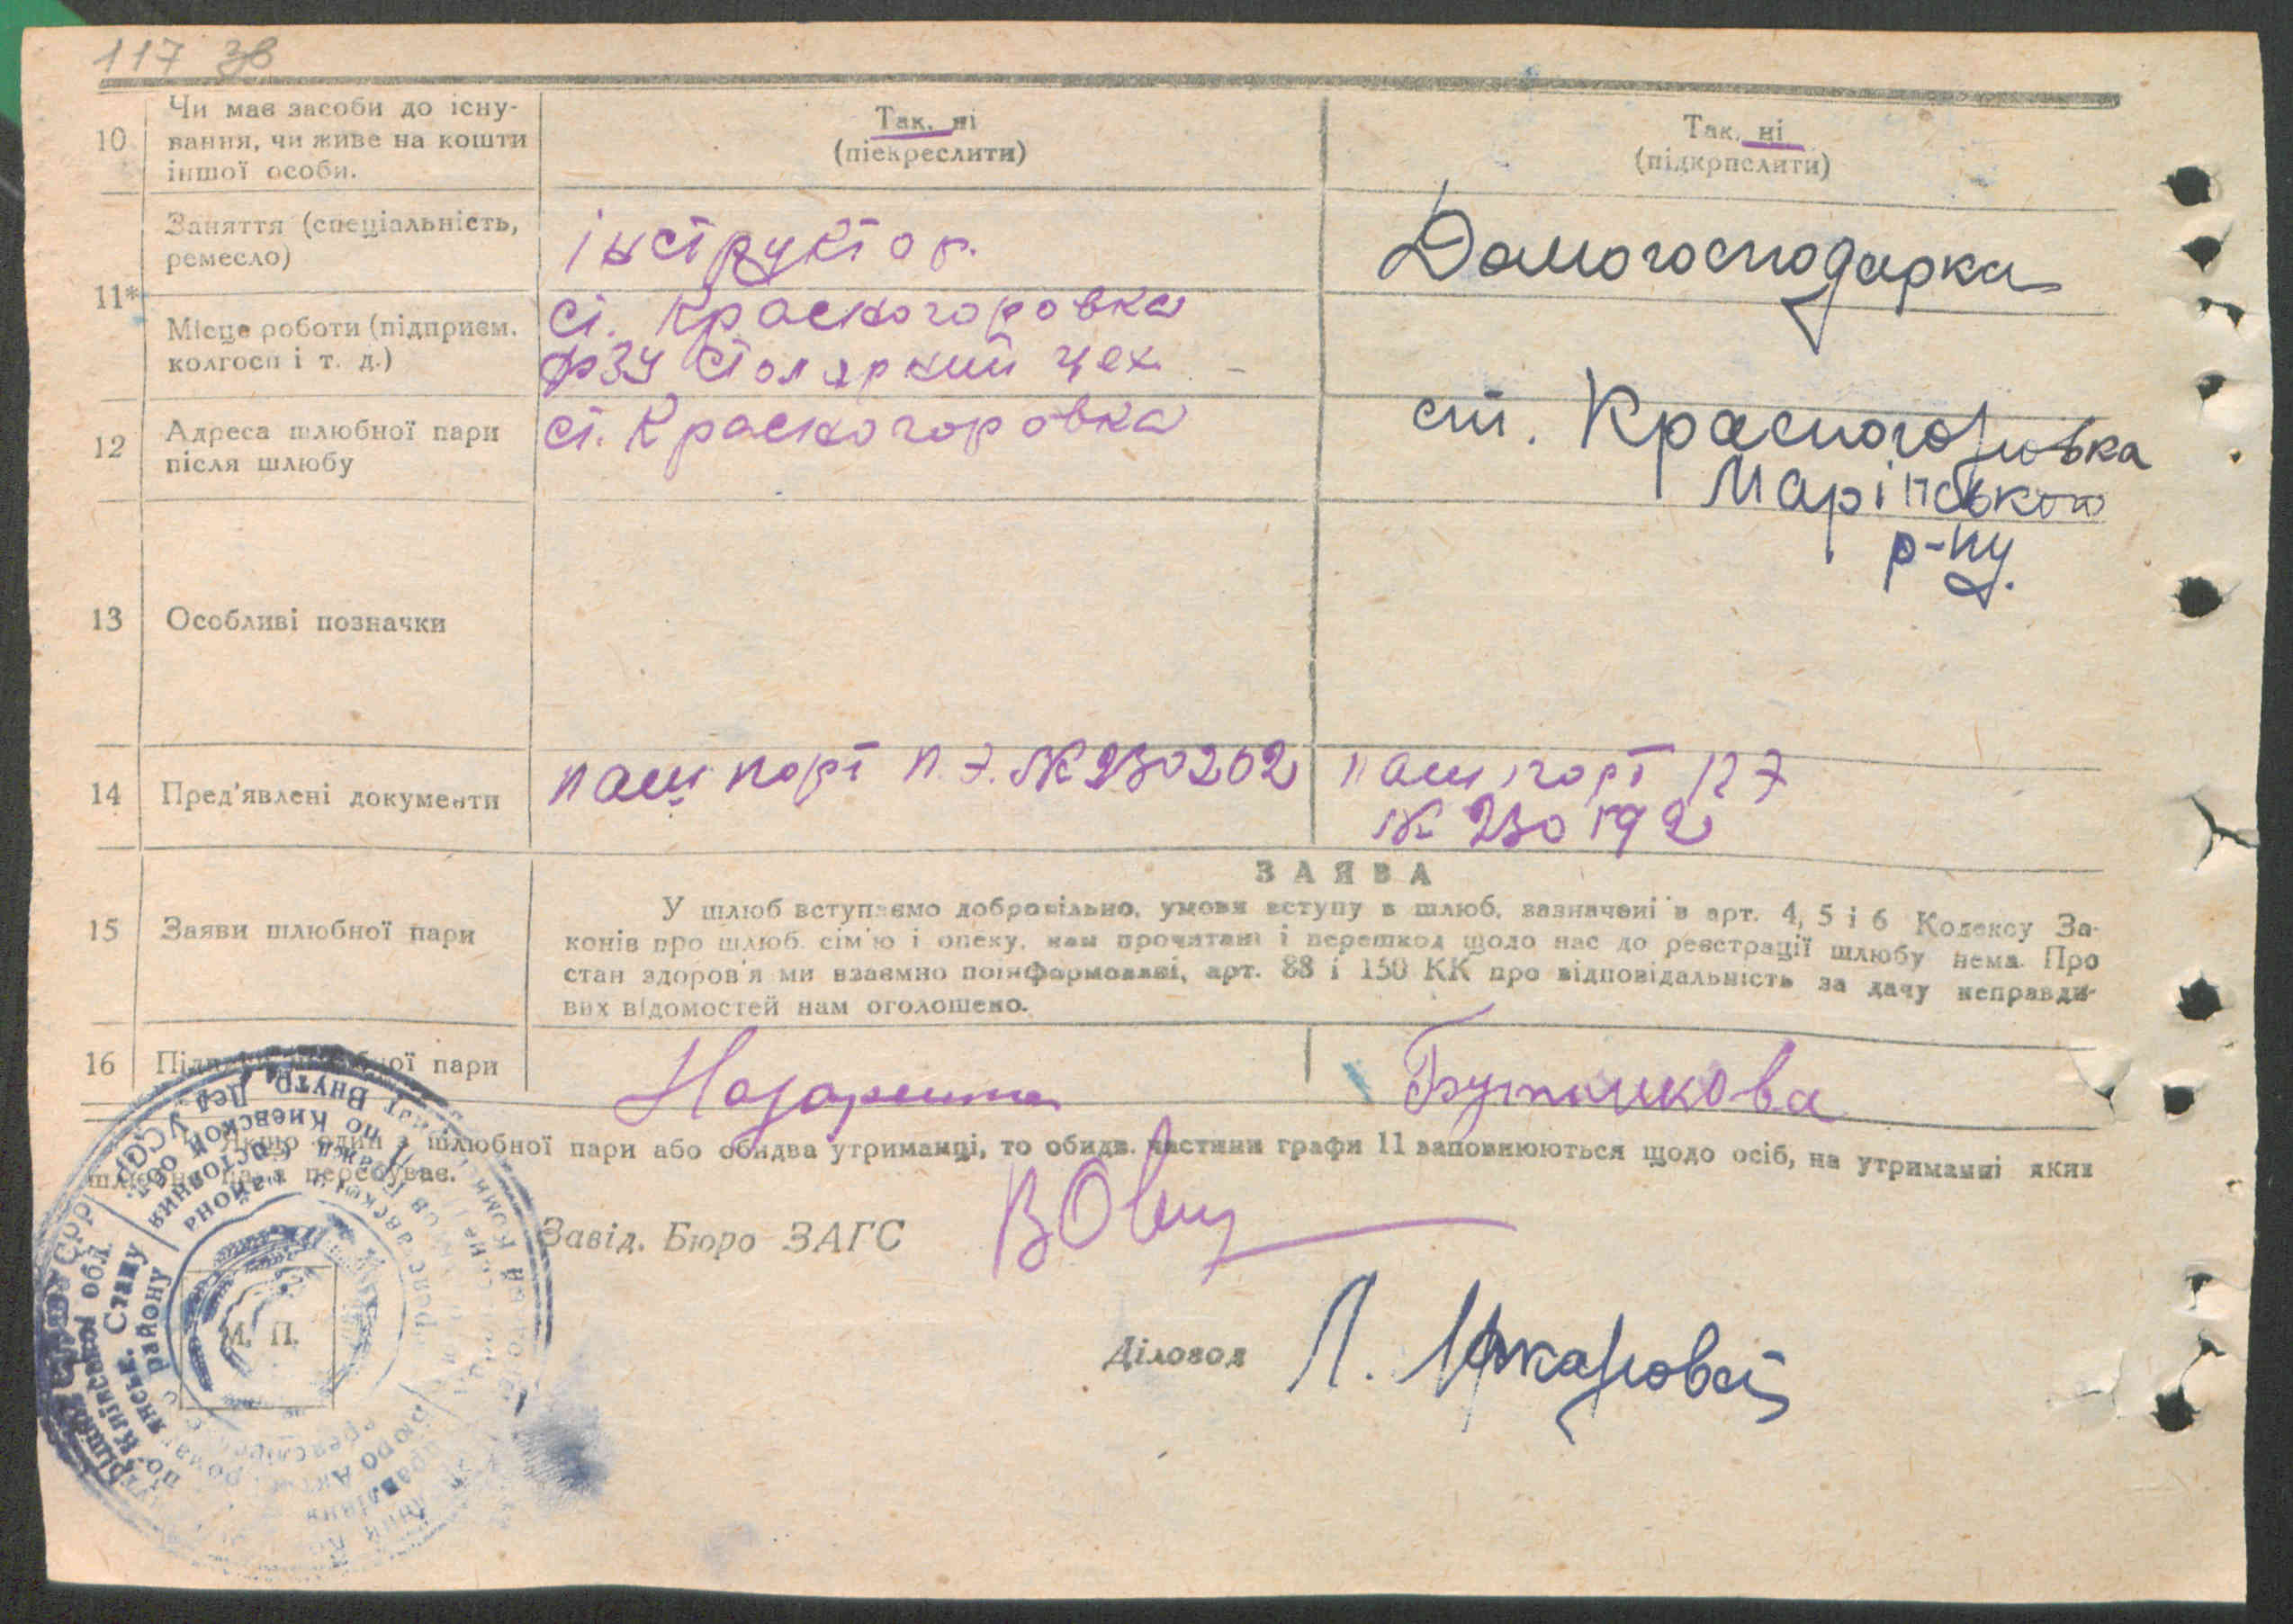 117 зв
10
Чи має засоби до існу-
вання, чи живе на кошти
іншої особи.
Так, ні
(піекреслити)
Так, ні
(підкрпслити)
11*
Заняття (спеціальність,
ремесло)
інструктор.
Домогосподарка
Місце роботи (підприєм.
колгосп і т. д.)
ст. Красногоровка
ФЗУ столяркий цех
12
Адреса шлюбної пари
після шлюбу
ст. Красногоровка
ст. Красногоровка
Марінського
р-ну.
13
Особливі позначки
14
Пред'явлені документи
пашпорт П.Э. № 230202
пашпорт ПЭ
№ 230192
ЗАЯВА
15
Заяви шлюбної пари
У шлюб вступаємо добровільно, умови вступу в шлюб, зазначені в арт. 4, 5 і 6 Кодексу За-
конів про шлюб, сім'ю і опеку, нам прочитані і перешкод щодо нас до реєстрації шлюбу нема. Про
стан здоров'я ми взаємно поінформовані, арт. 88 і 150 КК про відповідальність за дачу неправди-
вих відомостей нам оголошено.
16
Підписи шлюбної пари
Назаренко
Якщо один з шлюбної пари або обидва утриманці, то обидв. частини графи 11 заповнюються щодо осіб, на утриманні яких
шлюбна пара перебуває.
Завід. Бюро ЗАГС
Діловод
М. П.